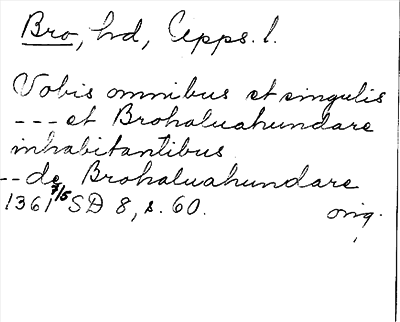 Bro, hd, Upps. l.
Vobis omnibus et singulis
--- et Brohaluahundare
inhabitantibus
-- de Brohaluahundare
1361 7/5 SD 8, s. 60. orig.